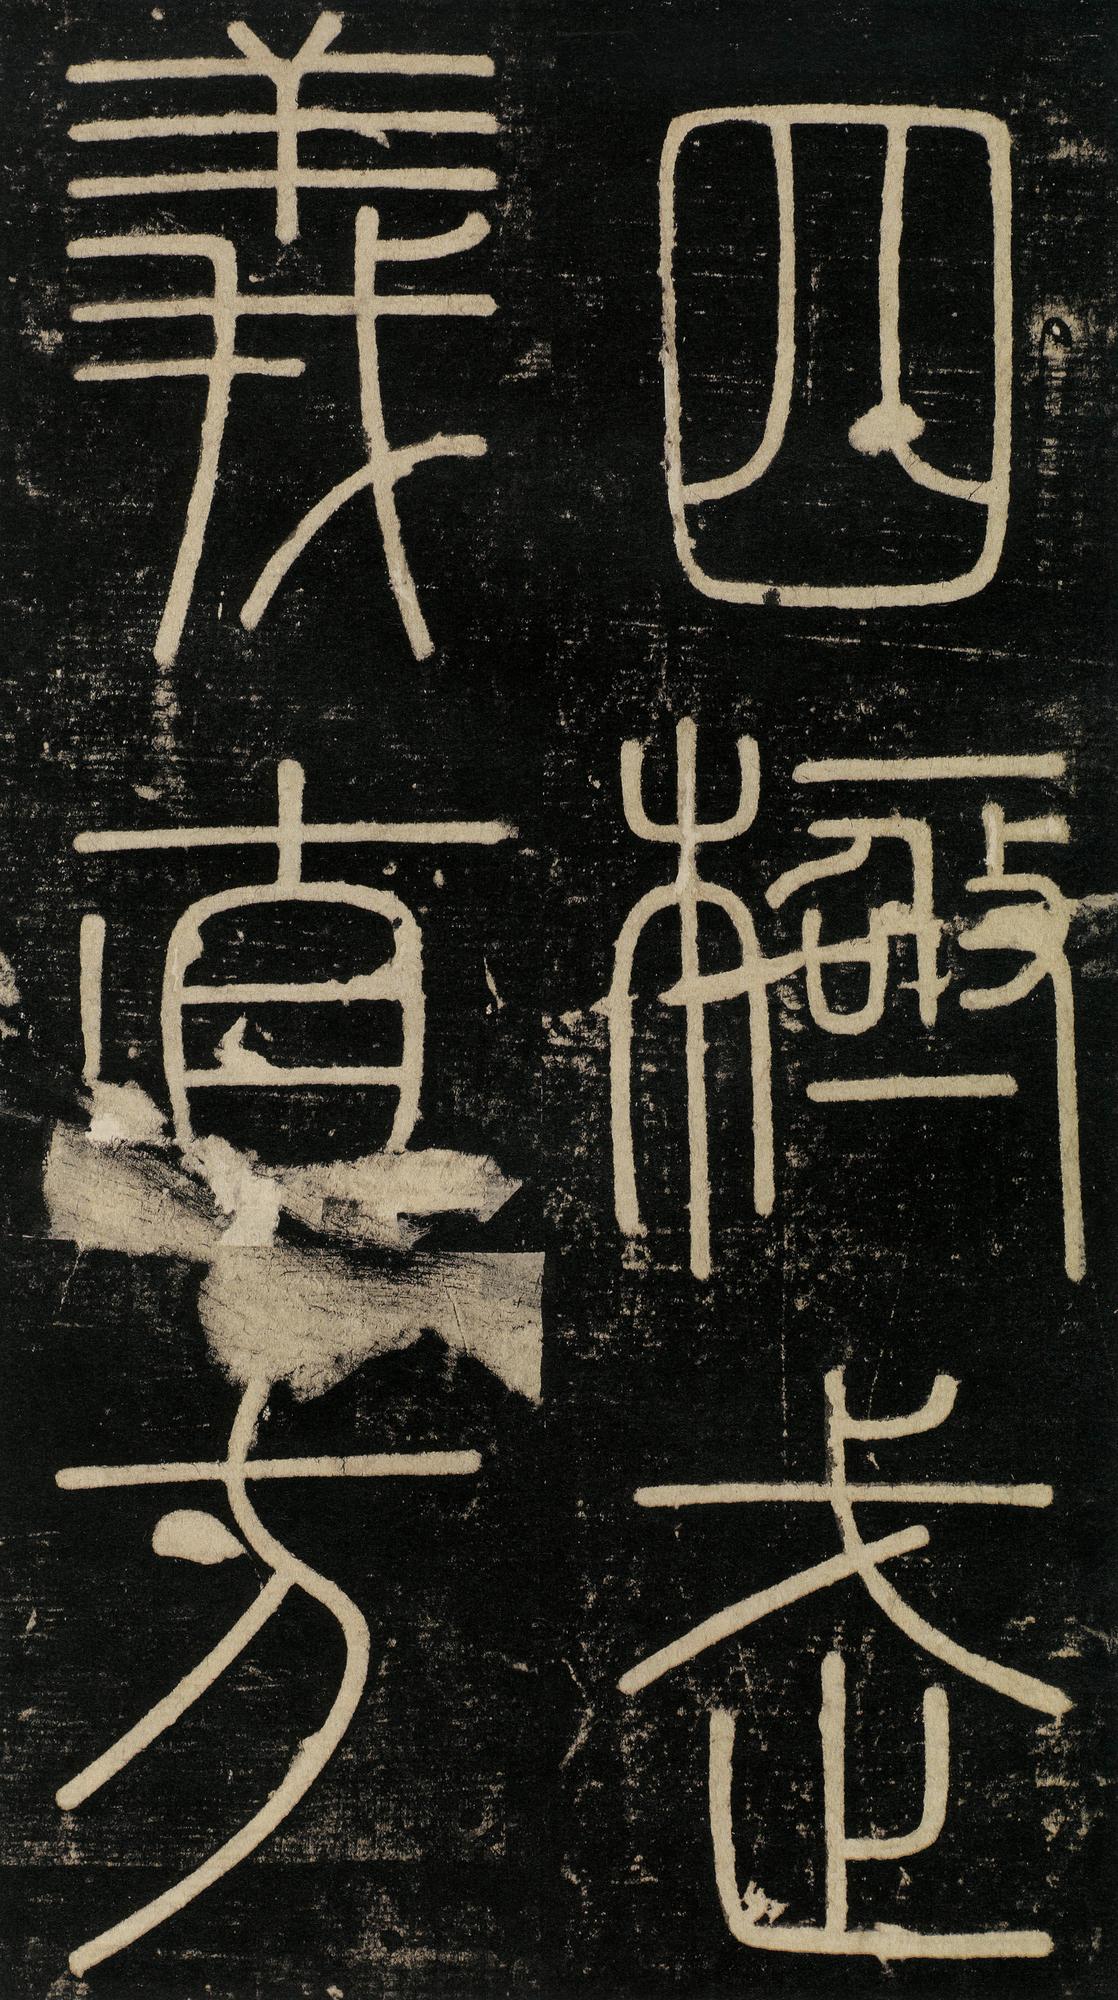 四極武
義直方